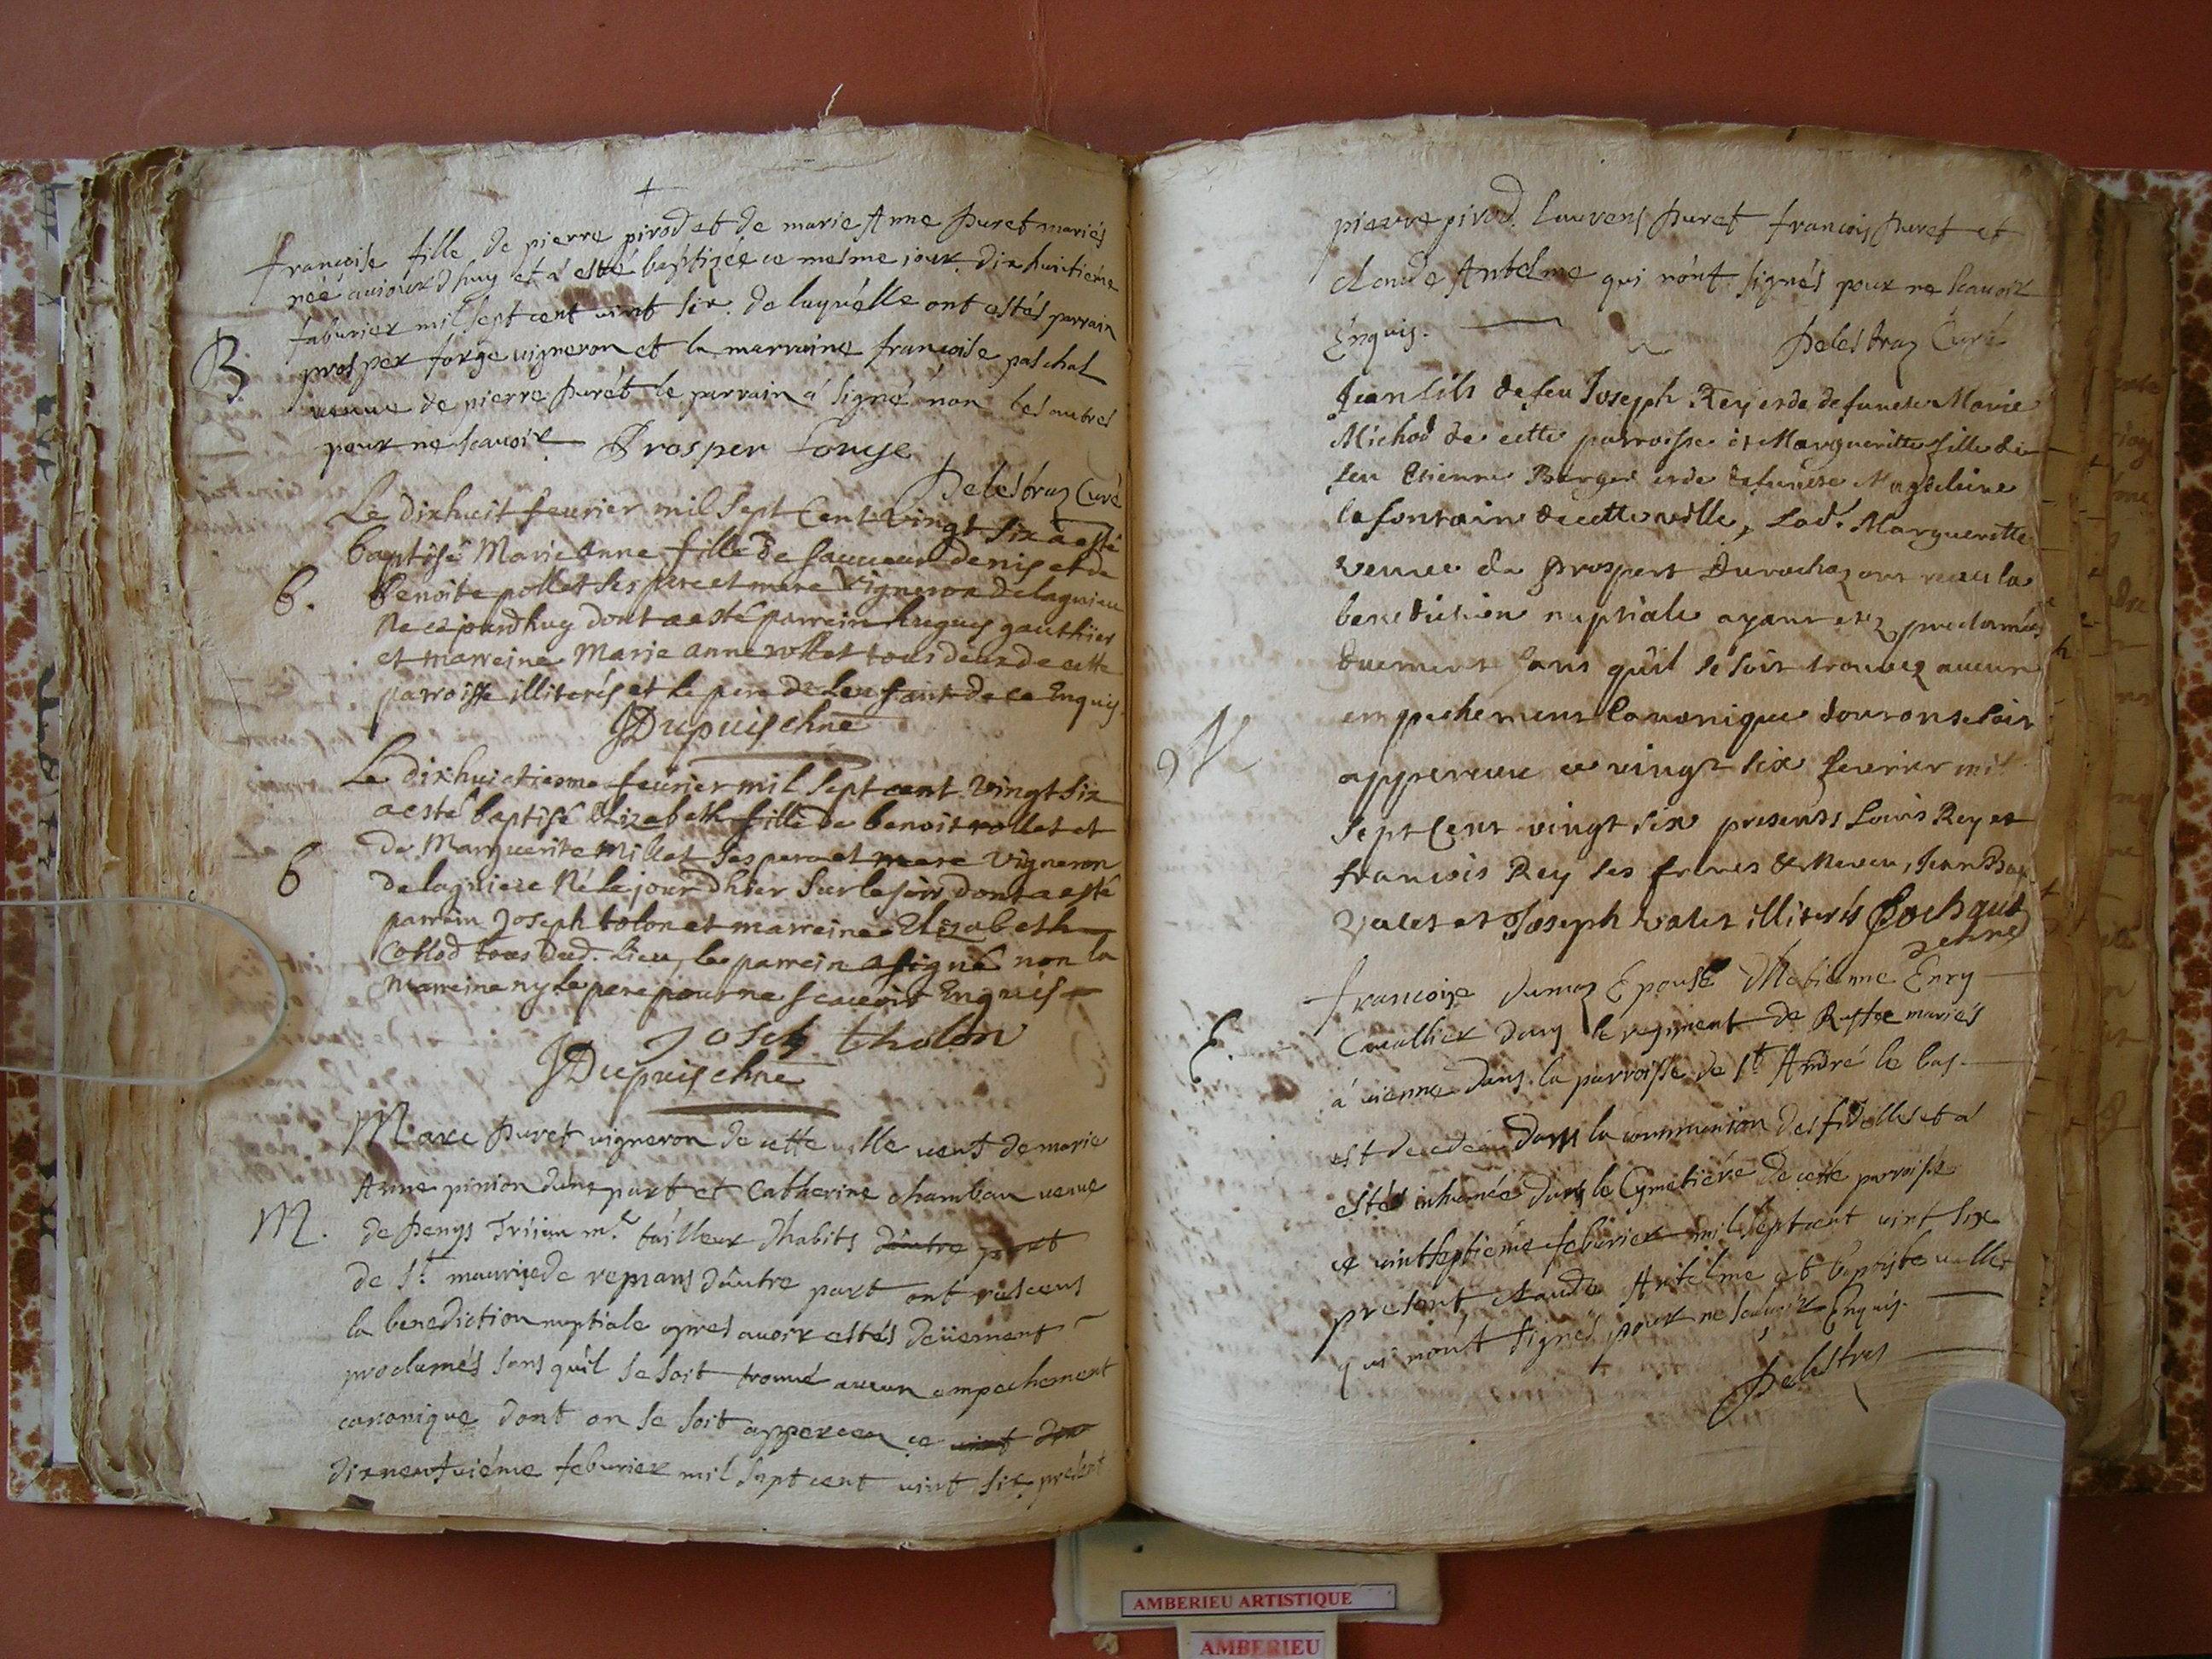 françoise fille de pierre pirod et de marie Anne Puret mariés
neé aujourdhuy et a esté baptizée ce mesme jour dixhuictiéme
feburier mil sept cent vint six. de laquélle ont estés parrain
B. prosper forge vigneron et la marraine françoise paschal
veuve de pierre Purét le parrain á signé non les autres
pour ne scavoir Prosper Forge
Delestraz Curé
Le dixhuit feurier mil sept Cent vingt six a esté
baptisé Marie Anne fille de sauueur denis et de
B. Benoite pollet ses pere et mere vigneron de lagnieu
Ne cejourdhuy dont a esté parrein huguy gauthier
et marreine Marie anne rollet tous deux de cette
parroisse illiterés et le pere de lenfant de ce Enquis
JDupuis chne
Le dixhuictiesme feurier mil sept cent vingt six
a esté baptisé Elizabeth fille de benoit rollet et
de Marguerite Millet ses pere et mere vigneron
B de lagnieu Né le jour dhier sur le soir dont a esté
parrein Joseph tolon et marreine Elizabeth
Collod tous dud. Lieu, le parrein a signé non la
Marreine ny le pere pour ne scavoir Enquis
Joseh tholon
JDupuis chne
Marc Puret vigneron de cette ville veuf de marie
Anne pinion dune part et Catherine chambau veuve
M. de Denys Trijan mr. tailleur dhabits dautre part
de St. maurice de remans dautre part ont
la benediction nuptiale apres avoir estés deüement
proclamés sans quil se soit trouvé aucun empechement
canonique dont on se soit apperceu ce vint
dixneufviéme feburier mil sept cent vint six, présent
pierre pirod. Laurens Puret françois Puret et
claude Antelme qui nont signés pour ne scavoir
Enquis. Delestraz Curé
Jean fils de feu Joseph Rey et de defuncte Marie
Michod de cette parroisse et Margueritte fille de
feu Etienne Berger et de defuncte Magdeleine
lafontaine de cette ville, Lad. Margueritte
veuve de Prospert Durochaz ont receu la
benediction nuptiale ayant etez proclamés
duement sans quil se soit trouvez aucun
M empechement Canonique dont on se soit
apperceu ce vingt six feurier mil
sept Cent vingt six presents Louis Rey et
francois Rey ses freres & Neveu, Jean Bap.
Valet et Joseph valet illiterés Cochaut
chne
francoise dumaz Epouse dhetienne Enry
E. Cavallier dans le regiment de Ruffec mariés
á vienne dans la parroisse de St. André le bas
est decedée dans la communion des fidelles et á
estée inhumée dans le Cymetiére de cette parroisse
ce vintseptiéme feburier mil sept cent vint six
present, claude Antelme et baptiste vallet
qui nont signés pour ne scavoir Enquis.
Delestras
AMBERIEU ARTISTIQUE
AMBERIEU